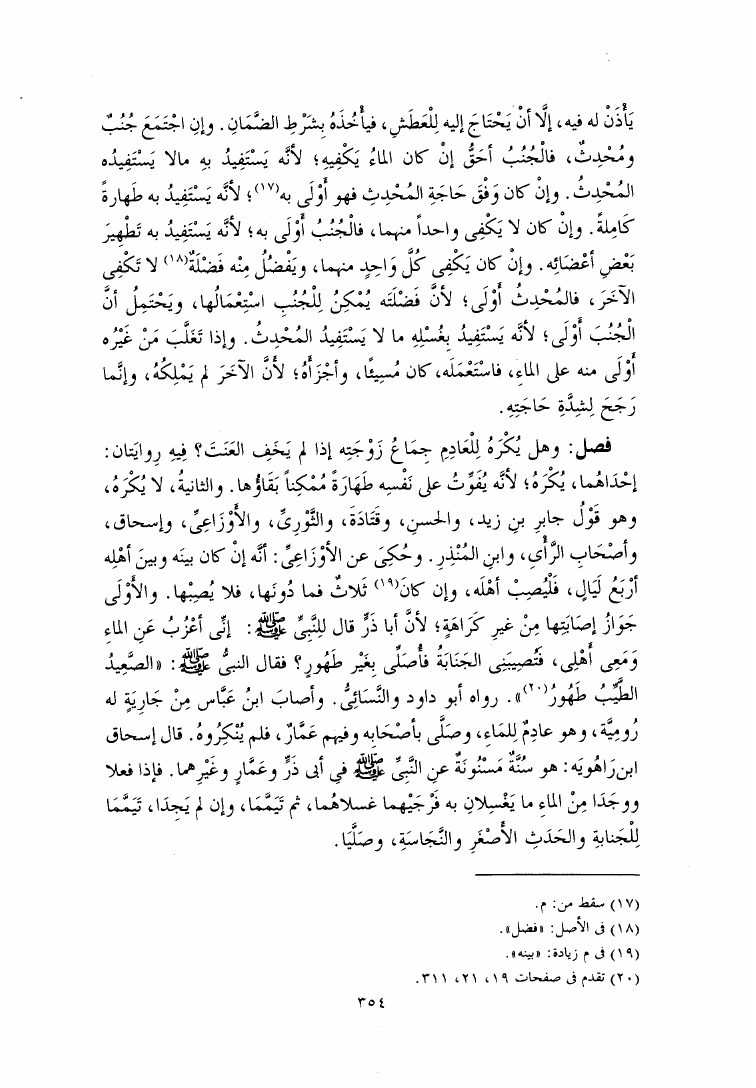 يَأْذَنْ له فيه، إلَّا أنْ يَحْتاجَ إليه لِلْعَطَشِ، فيأْخُذَهُ بشَرْطِ الضَّمَانِ. وإن اجْتَمَعَ جُنُبٌ
ومُحْدِثٌ، فالْجُنُبُ أحَقُّ إنْ كان الماءُ يَكْفِيهِ؛ لأنَّه يَسْتَفِيدُ بهِ مالا يَسْتَفِيدُه
المُحْدِثُ. وإنْ كان وَفْقَ حَاجَةِ المُحْدِثِ فهو أَوْلَى به(١٧)؛ لأنَّه يَسْتَفِيدُ به طهارةً
كامِلةً. وإنْ كان لا يَكْفِى واحداً منهما، فالْجُنُبُ أَوْلَى به؛ لأنَّه يَسْتَفِيدُ به تَطْهِيرَ
بَعْضِ أعْضَائِه. وإنْ كان يَكْفِى كُلَّ وَاحِدٍ منهما، ويَفْضُلُ مِنْه فَضْلَةٌ(١٨) لا تَكْفِى
الآخَرَ، فالمُحْدِثُ أَوْلَى؛ لأنَّ فَضْلَتَه يُمْكِنُ لِلْجُنُبِ اسْتِعْمَالُها، ويَحْتَمِلُ أنَّ
الْجُنُبَ أَوْلَى؛ لأنَّه يَسْتَفِيدُ بغُسْلِهِ ما لا يَسْتَفِيدُ المُحْدِثُ. وإذا تَغَلَّبَ مَنْ غَيْرُه
أَوْلَى منه على الماءِ، فاسْتَعْمَلَه، كان مُسِيئًا، وأجْزَأَهُ؛ لأنَّ الآخَرَ لم يَمْلِكْهُ، وإنَّما
رَجَحَ لِشِدَّةِ حَاجَتِهِ.
فصل: وهل يُكْرَهُ لِلْعَادِمِ جِمَاعُ زَوْجَتِه إذا لم يَخَفِ العَنَتَ؟ فيه رِوايَتان:
إحْدَاهُما، يُكْرَهُ؛ لأنَّه يُفَوِّتُ على نَفْسِه طَهَارَةً مُمْكِناً بَقَاؤُها. والثانيةُ، لا يُكْرَهُ،
وهو قَوْلُ جابرِ بنِ زيد، والحسنِ، وقَتَادَةَ، والثَّوْرِىِّ، والأَوْزَاعِىِّ، وإسحاق،
وأصْحَابِ الرَّأْىِ، وابنِ المُنْذِرِ. وحُكِىَ عن الأَوْزَاعِىِّ: أنَّه إنْ كان بينَه وبينَ أهْلِه
أرْبَعُ لَيَالٍ، فَلْيُصِبْ أهْلَه، وإن كانَ(١٩) ثَلاثٌ فما دُونَها، فلا يُصِبْها. والأَوْلَى
جَوَازُ إصَابَتِها مِنْ غيرِ كَرَاهَةٍ؛ لأنَّ أبا ذَرٍّ قال للنَّبِىِّ ﷺ: إنِّى أعْزُبُ عَنِ الماءِ
وَمَعِى أهْلِى، فَتُصِيبُنِى الجَنَابَةُ فأُصَلِّى بغَيْرِ طَهُورٍ؟ فقال النبىُّ ﷺ: «الصَّعِيدُ
الطَّيِّبُ طَهُورٌ(٢٠)». رواه أبو داود والنَّسائِىُّ. وأصابَ ابنُ عَبَّاس مِنْ جَارِيَةٍ له
رُومِيَّة، وهو عادِمٌ للمَاءِ، وصَلَّى بأصْحَابِه وفيهم عَمَّارٌ، فلم يُنْكِروهُ. قال إسحاق
ابن رَاهُويَه: هو سُنَّةٌ مَسْنُونَةٌ عن النَّبِىِّ ﷺ فى أبى ذَرٍّ وعَمَّارٍ وغَيْرِهما. فإذا فعلا
ووجَدَا مِنْ الماءِ ما يَغْسِلان به فَرْجَيْهما غسلاهُما، ثم تَيَمَّمَا، وإن لم يَجِدَا، تَيَمَّمَا
لِلْجَنابةِ والحَدَثِ الأَصْغَرِ والنَّجَاسَةِ، وصَلَّيَا.
(١٧) سقط من: م.
(١٨) فى الأصل: «فضل».
(١٩) فى م زيادة: «بينه».
(٢٠) تقدم فى صفحات ١٩، ٢١، ٣١١.
٣٥٤